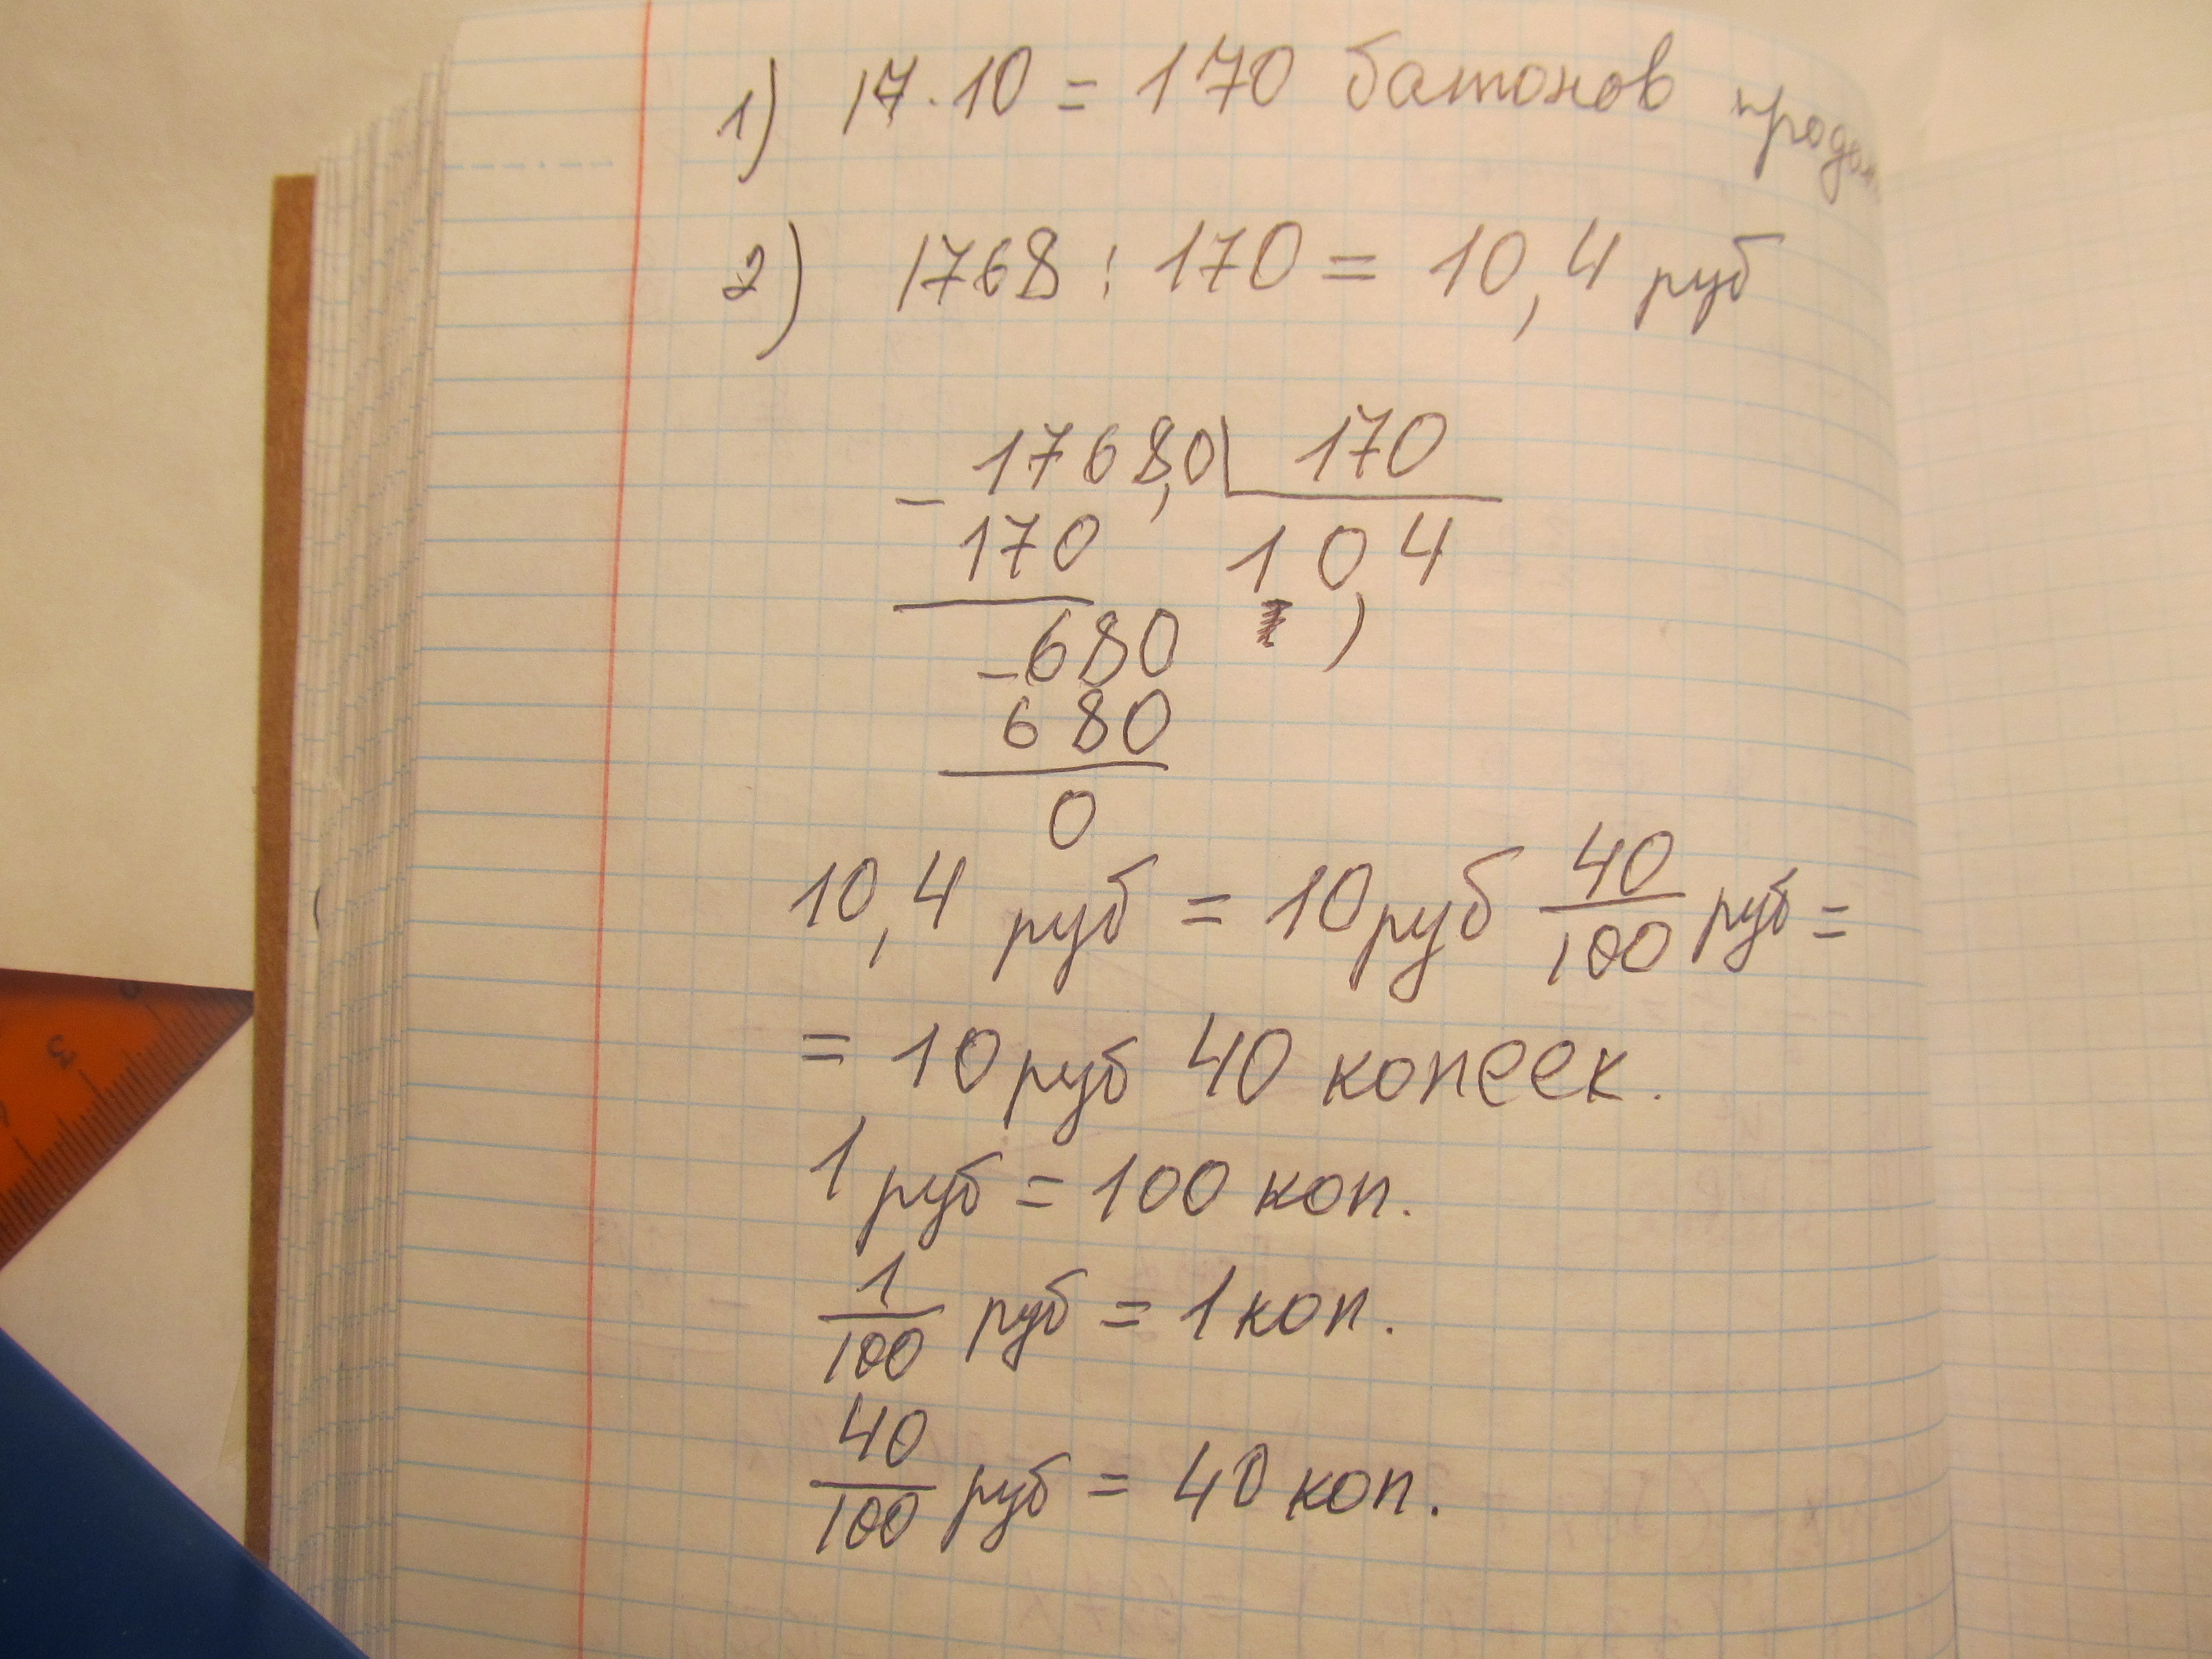 1) 17 · 10 = 170 батонов
2) 1768 : 170 = 10,4 руб
1768,0 170
170 10,4
680
680
0
10,4 руб = 10 руб 40/100 руб =
= 10 руб 40 копеек.
1 руб = 100 коп.
1/100 руб = 1 коп.
40/100 руб = 40 коп.